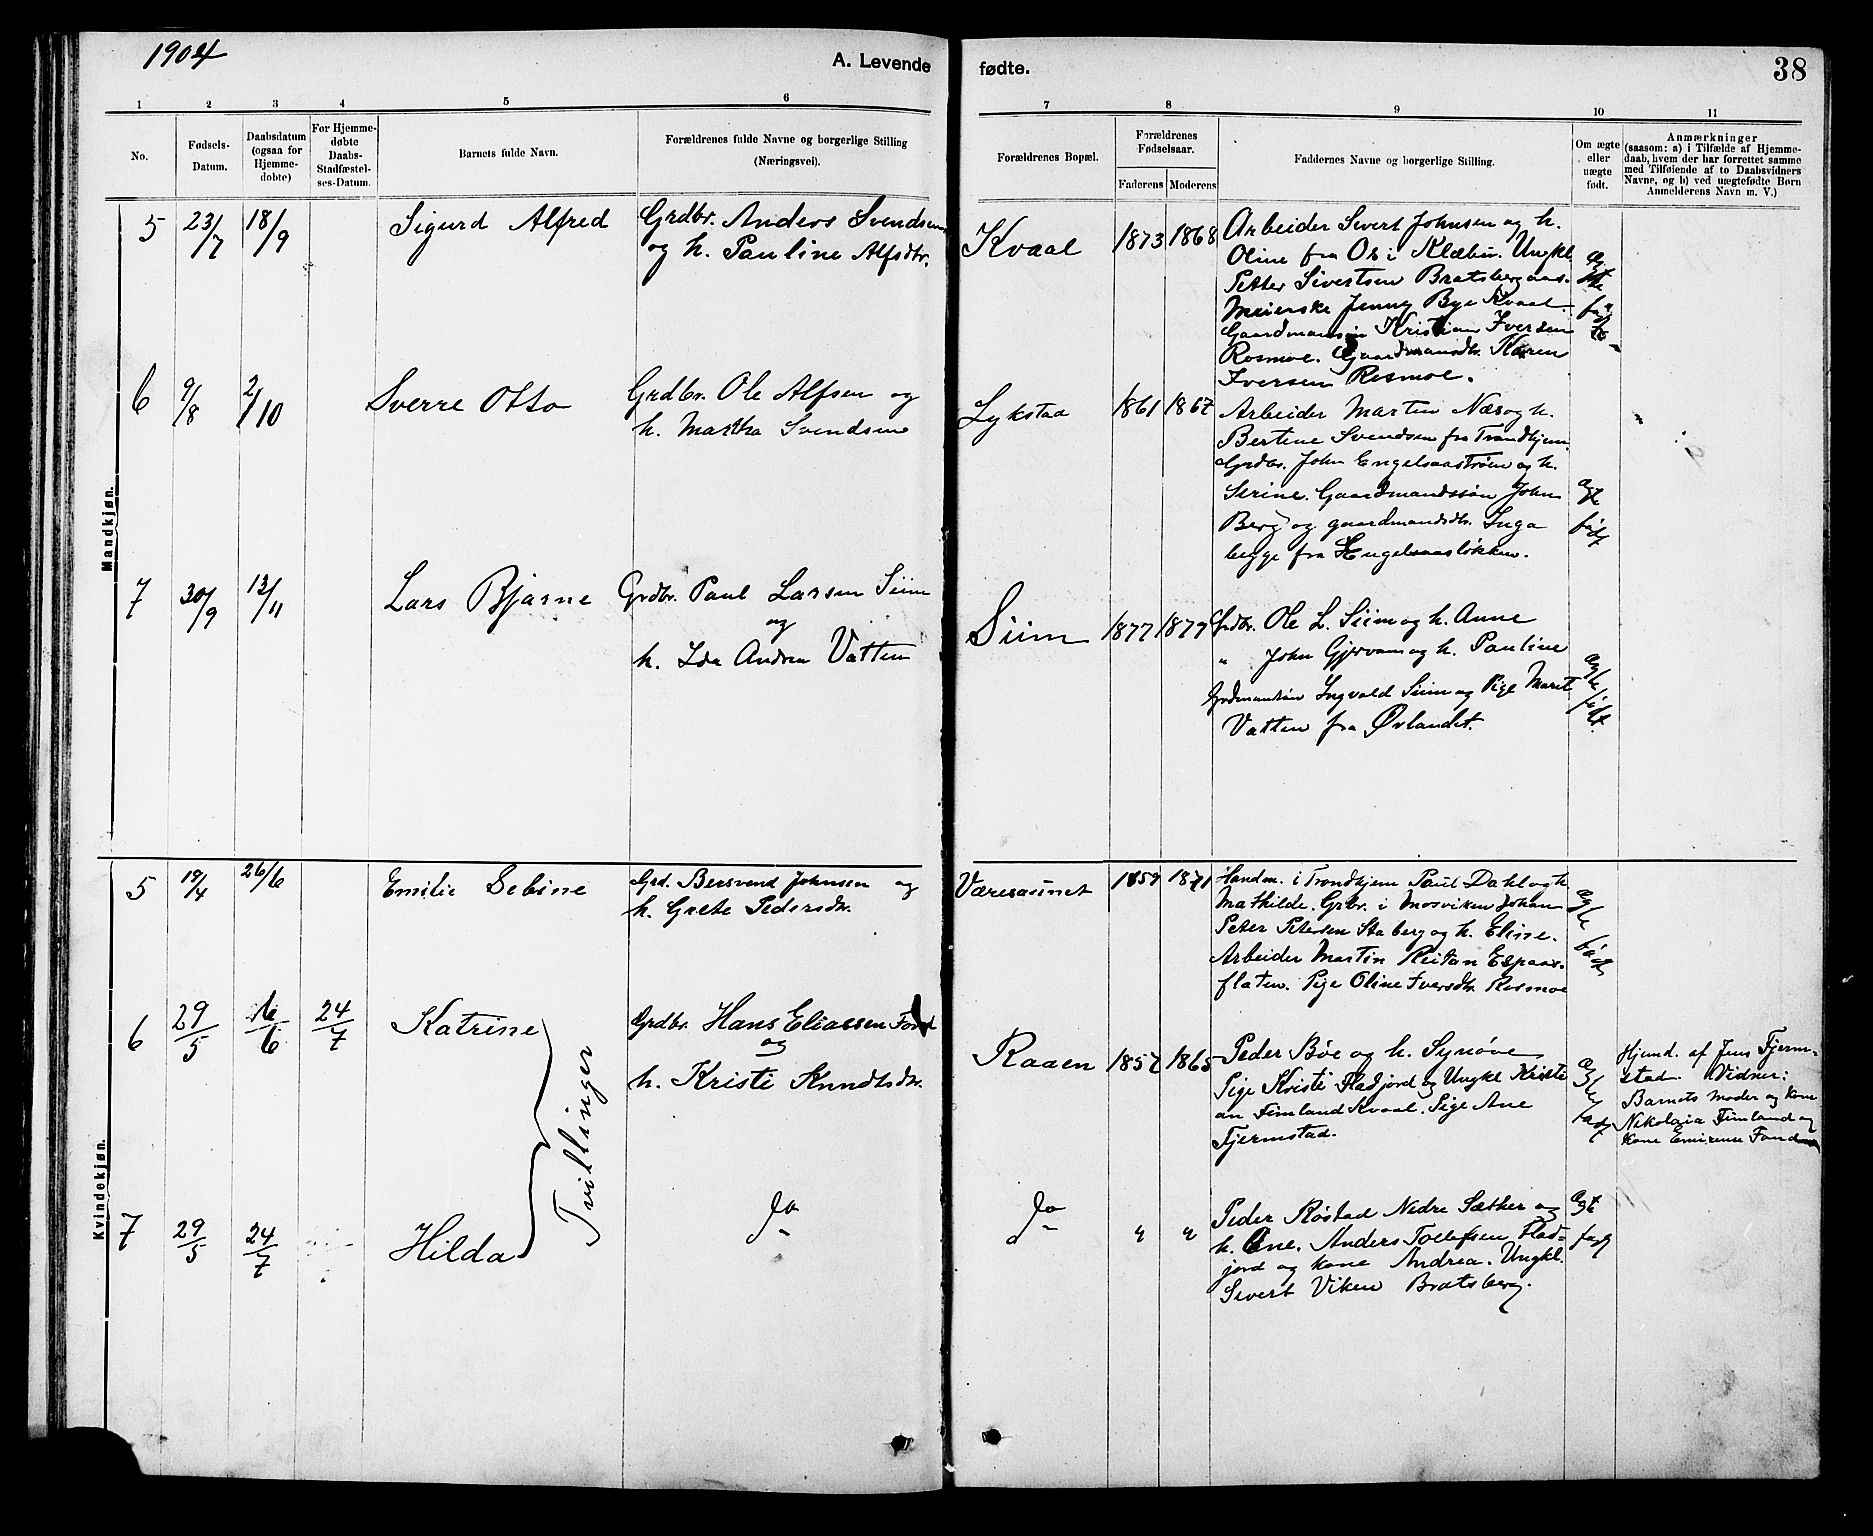 1904
A. Levende
fødte.
38
1 2 3 4 5 6 7 8 9 10 11
No.
Fødsels-
Datum.
Daabsdatum
(ogsaa for
Hjemme-
døbte)
For Hjemme-
døbte
Daabs-
Stadfæstel-
ses-Datum.
Barnets fulde Navn.
Forældrenes fulde Navne og borgerlige Stilling
(Næringsvei).
Forældrenes Bopæl.
Forældrenes
Fødselsaar.
Faderens Moderens
Faddernes Navne og borgerlige Stilling.
Om ægte
eller
uægte
født.
Anmærkninger
(saasom: a) i Tilfælde af Hjemme-
daab, hvem der har forrettet samme
med Tilføiende af to Daabsvidners
Navne, og b) ved uægtefødte Børn
Anmelderens Navn m. V.)
Mandkjøn.
5 23/7 18/9 Sigurd Alfred
Grdbr. Anders Svendsen
og h. Pauline Alfsdtr.
Kvaal 1873 1868
Arbeider Sivert Johnsen og h.
Oline fra Os i Klæbu. Ungkl.
Petter Sivertsen Bratsbergaas.
Meierske Jenny Bye Kvaal.
Gaardmansøn Kristian Iversen
Rosmoe. Gaardmansdtr. Karen
Iversen Rosmoe.
ægte
født
6 9/8 2/10 Sverre Otto
Grdbr. Ole Alfsen og
h. Martha Svendsen
Lykstad 1861 1867
Arbeider Martin Næs og h.
Bertine Svendsen fra Trondhjem
Grdbr. John Engelsaastrøen og h.
Serine. Gaardmandssøn John
Berg og gaardmandsdtr. Inga
begge fra Engelsaasløkken.
ægte
født
7 30/9 13/11 Lars Bjarne
Grdbr. Paul Larsen Siim
og
h. Ida Andrea Vatten
Siim 1877 1879
Grdbr. Ole L. Siim og h. Anne
" John Gjervan og h. Pauline
Grdmansøn Ingvald Siim og Pige Marit
Vatten fra Ørlandet.
ægte
født.
Kvindekjøn.
5 18/4 26/6 Emilie Sebine
Grd. Bersvend Johnsen og
h. Grete Pedersdtr.
Væresaunet 1859 1871
Handm. i Trondhjem Paul Dahl og h
Mathilde. Grbr. i Mosviken Johan
Peter Petersen Staberg og h. Eline.
Arbeider Martin Reitan Espaas-
flaten. Pige Oline Iversdtr. Rosmoe
ægte
født
6 29/5 /6 24/7 Katrine
Grdbr. Hans Eliassen
og
h. Kristi Knudtsdtr.
Raaen 1857 1865
Peder Bøe og h. Synøve
Pige Kristi Fladjord og Ungkl Kristi
an Fimland Kvaal. Pige Ane
Fjermstad.
ægte
født
Hjemd. af Jens Fjerm-
stad. Vidner:
Barnets Moder og Kone
Nikolaia Fimland og
Kone Fand
Tvillinger
7 29/5 24/7 Hilda
Do
Do " "
Peder Røstad Nedre Sæther og
h. Ane. Anders Tollefsen Flad-
jord og kone Andrea. Ungkl.
Sivert Viken Bratsberg.
ægt
født